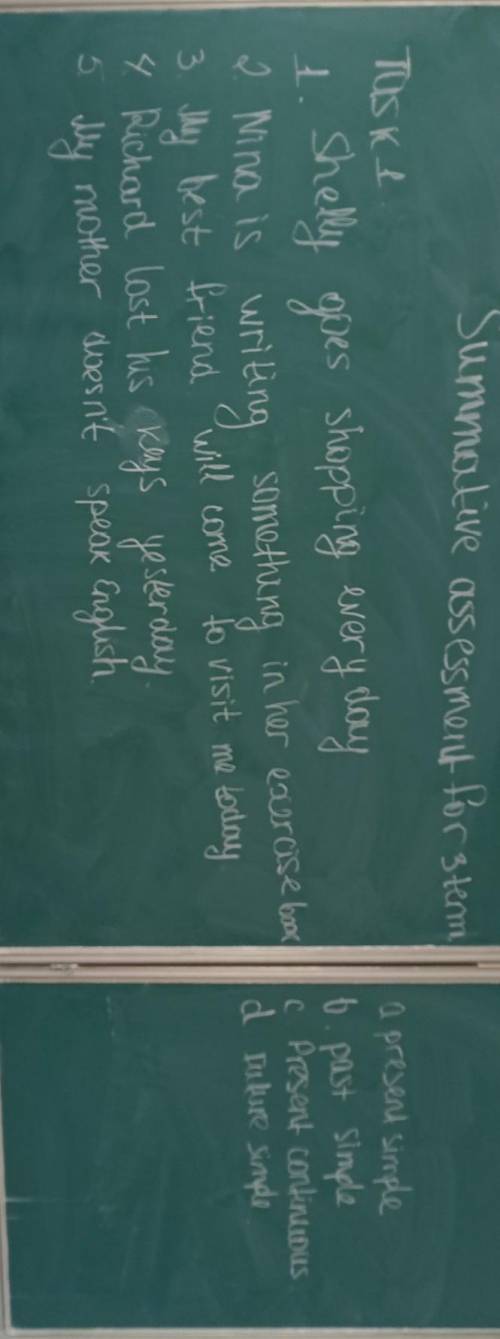 Summative assessment for 3 term
Task 1.
1. Shelly goes shopping every day
2. Nina is writing something in her exercise book
3. My best friend will come to visit me today
4. Richard lost his keys yesterday.
5. My mother doesnt speak English
a present simple
b. past simple
c Present continuous
d Future simple